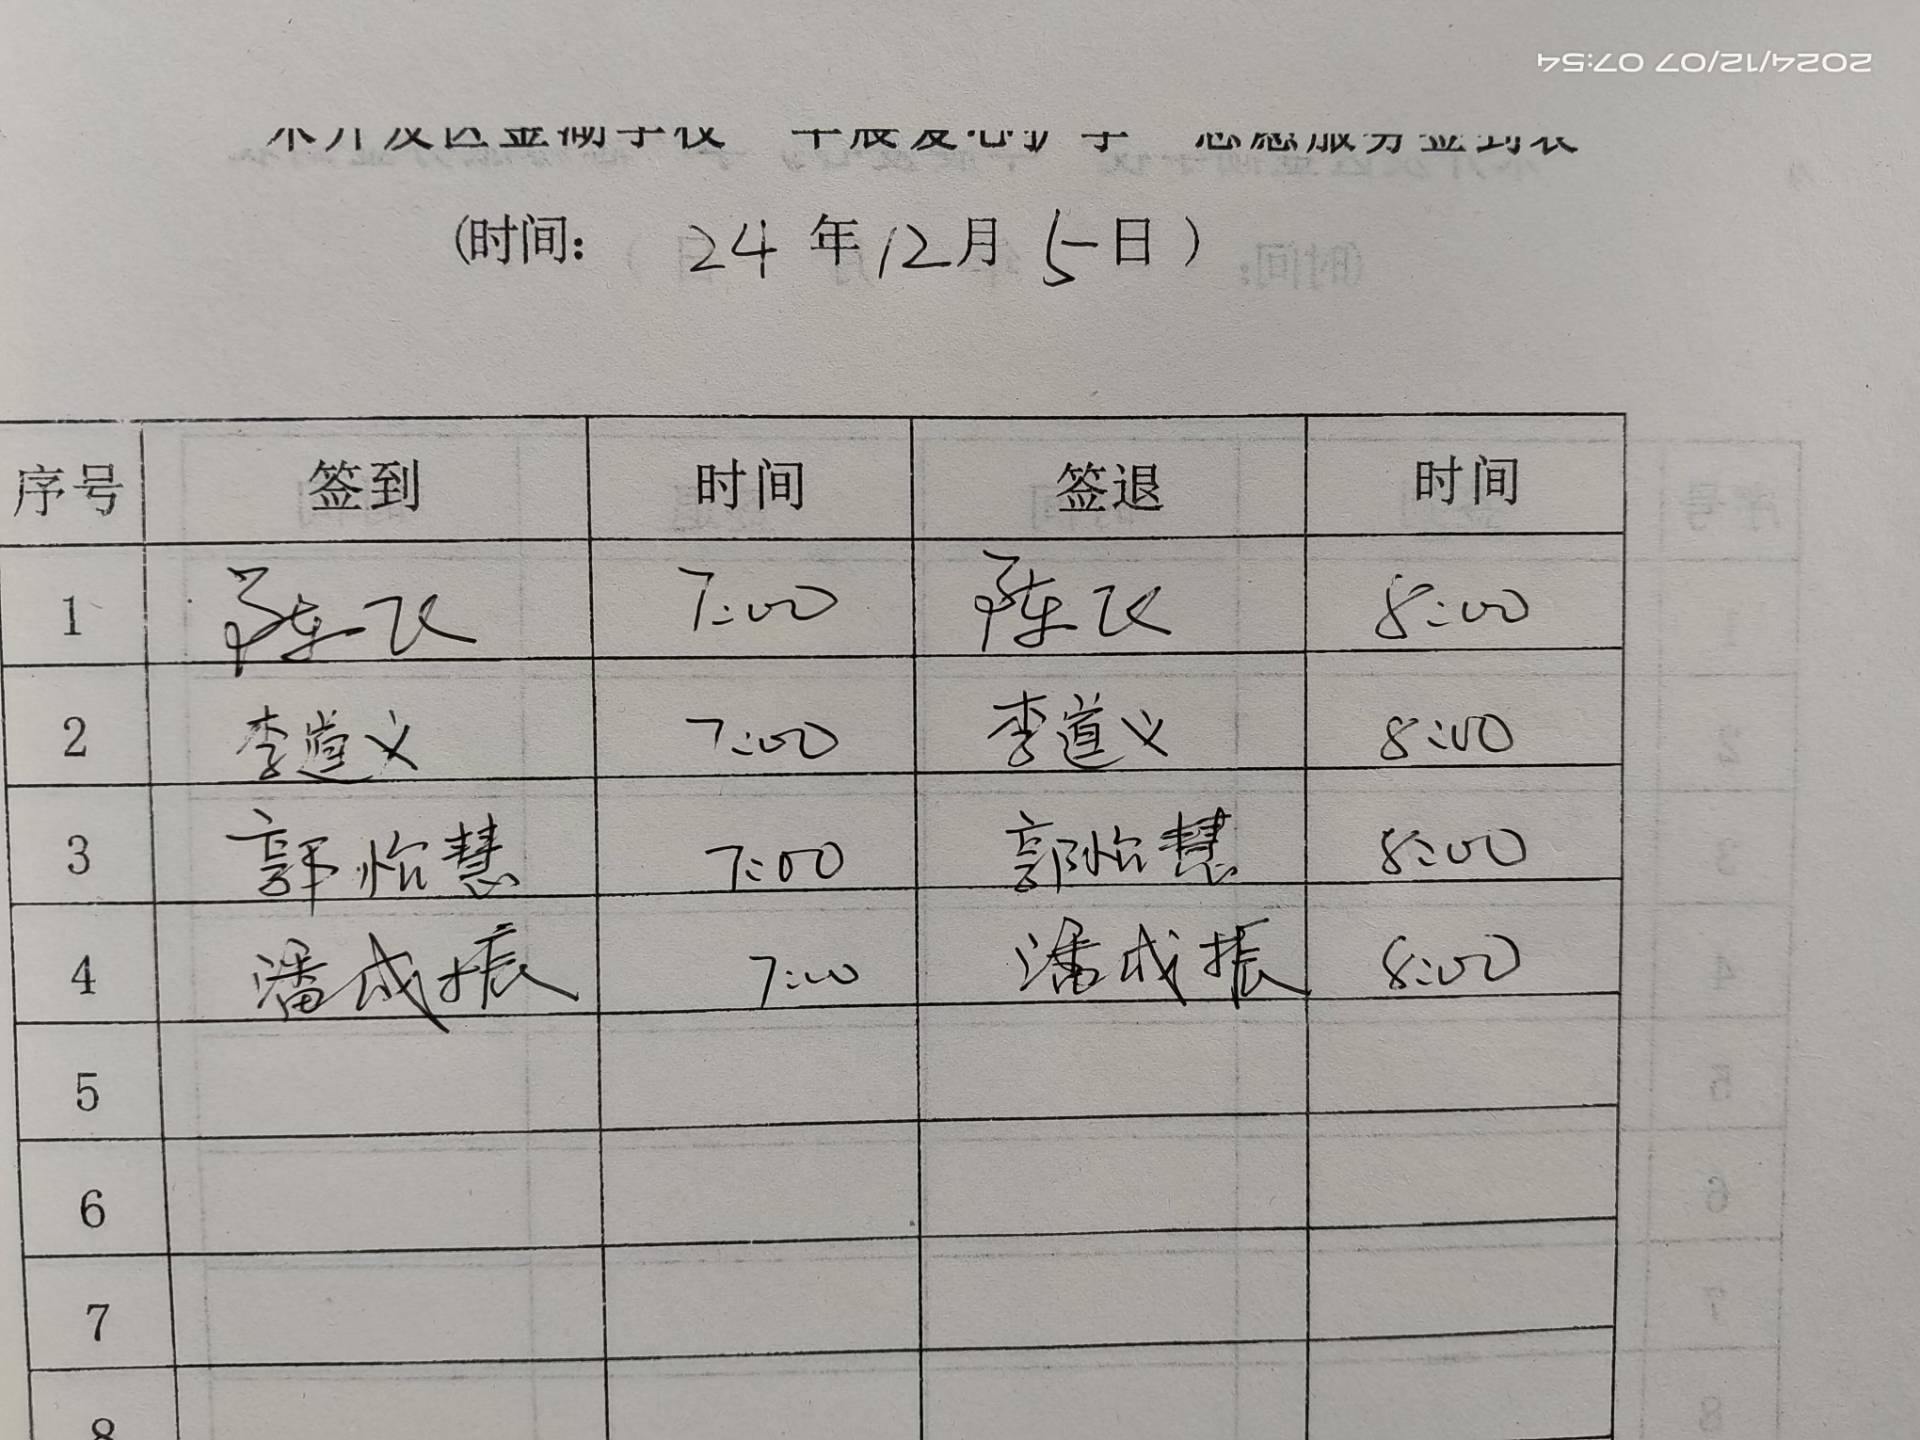 2024/12/07 07:54
术开发区金湖学校 早晨爱心护学 志愿服务签到表
(时间： 24 年 12 月 5 日)
序号 签到 时间 签退 时间
1 陈飞 7:00 陈飞 8:00
2 李道义 7:00 李道义 8:00
3 郭怡慧 7:00 郭怡慧 8:00
4 潘成振 7:00 潘成振 8:00
5
6
7
8